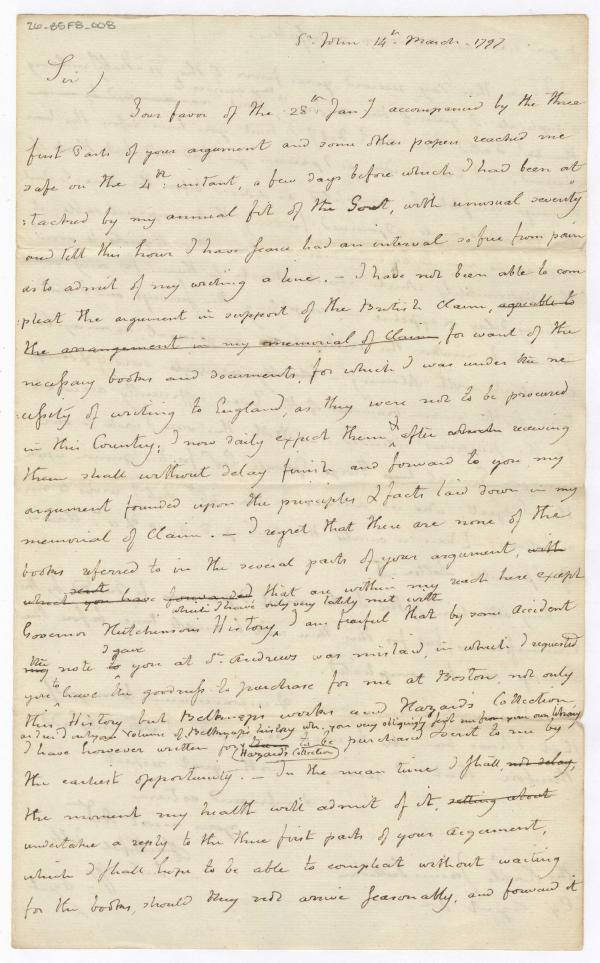 26-85F8_008
St. John 14th. March. 1797
Sir,
Your favor of the 28th Jany accompanied by the three
first Parts of your argument and some other papers reached me
safe on the 4th: instant, a few days before which I had been at
:tacked by my annual fit of the Gout, with unusual severity
and till this hour I have scarce had an interval so free from pain
as to admit of my writing a line. – I have not been able to com
:pleat the argument in support of the British Claim, agreable to
the arrangement in my memorial of Claim, for want of the
necessary books and documents, for which I was under the ne
:cessity of writing to England, as they were not to be procured
in this Country; I now daily expect them & after which receiving
them shall without delay finish and forward to you my
argument founded upon the principles & facts laid down in my
memorial of Claim. – I regret that there are none of the
books referred to in the several parts of your argument, with
sent
which you have forwarded that are within my reach here, except
which I have only very lately met with
Governor Hutchinson's History, I am fearful that by some accident
I gave
the note to you at St. Andrews was mislaid, in which I requested
you to have the goodness to purchase for me at Boston, not only
this History but Belknap's works and Hazard's Collection
volume of Belknap's history whi. you very obligingly sent me from your own library
I have however written for to be purchased & sent to me by
Hazard's Collection
the earliest opportunity. – In the mean time I shall, not delay,
the moment my health will admit of it, setting about
undertake a reply to the three first parts of your argument,
which I shall hope to be able to compleat without waiting
for the books, should they not arrive seasonably, and forward it